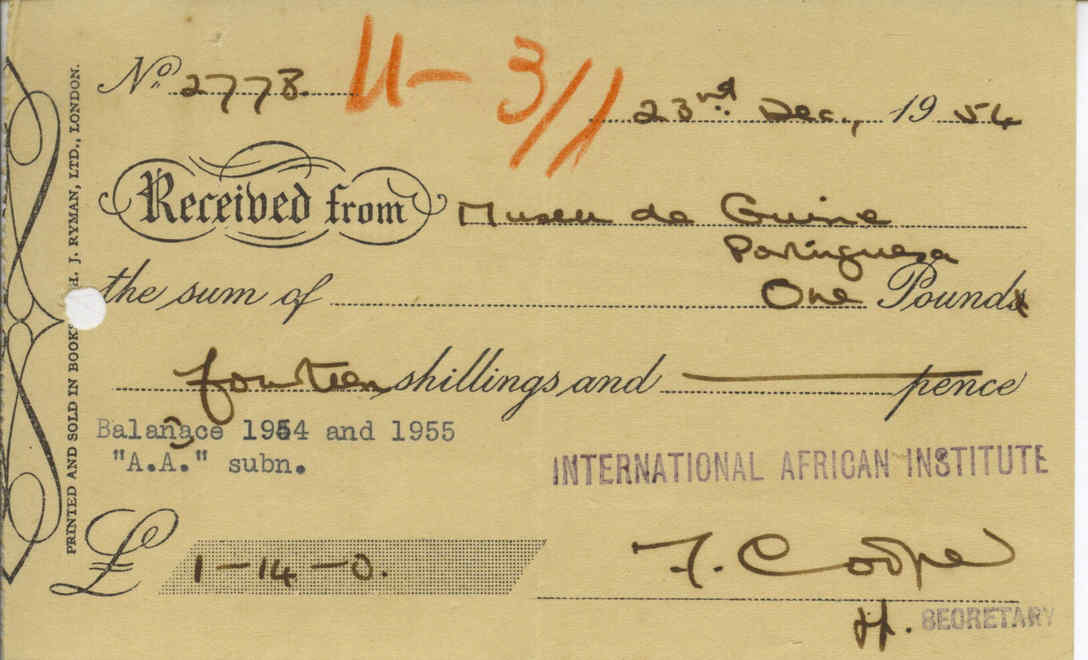 No. 2778. 11- 3/1 23rd Dec., 1954
Received from Museu da Guine
Portuguesa
the sum of One Pounds
fourteen shillings and — pence
Balanace 1954 and 1955
"A.A." subn.
INTERNATIONAL AFRICAN INSTITUTE
£ 1-14-0.
SECRETARY
PRINTED AND SOLD IN BOOKS J. RYMAN, LTD., LONDON.